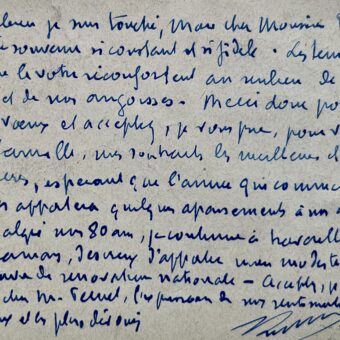 je suis touché, Mon cher Monsieur
souvenir si constant et si fidèle. Les
le votre réconfortent au milieu de
et de nos angoisses. Merci donc
vœux et acceptez, je vous prie, pour
famille, mes souhaits les meilleurs
espérant que l'année qui commence
apportera quelque apaisement à nos
malgré mes 80 ans, je continue à
d'apporter mon modeste
de rénovation nationale - Acceptez,
cher M. l'expression de mes sentiments
et les plus dévoués